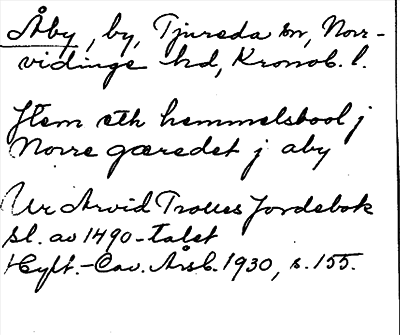 Åby, by, Tjureda sn, Norr-
vidinge hd, Kronob. l.
Item eth hemmelsbool j
Norre gæredet j aby
Ur Arvid Trolles Jordebok
sl. av 1490-talet
Hylt.-Cav. Årsb. 1930, s. 155.